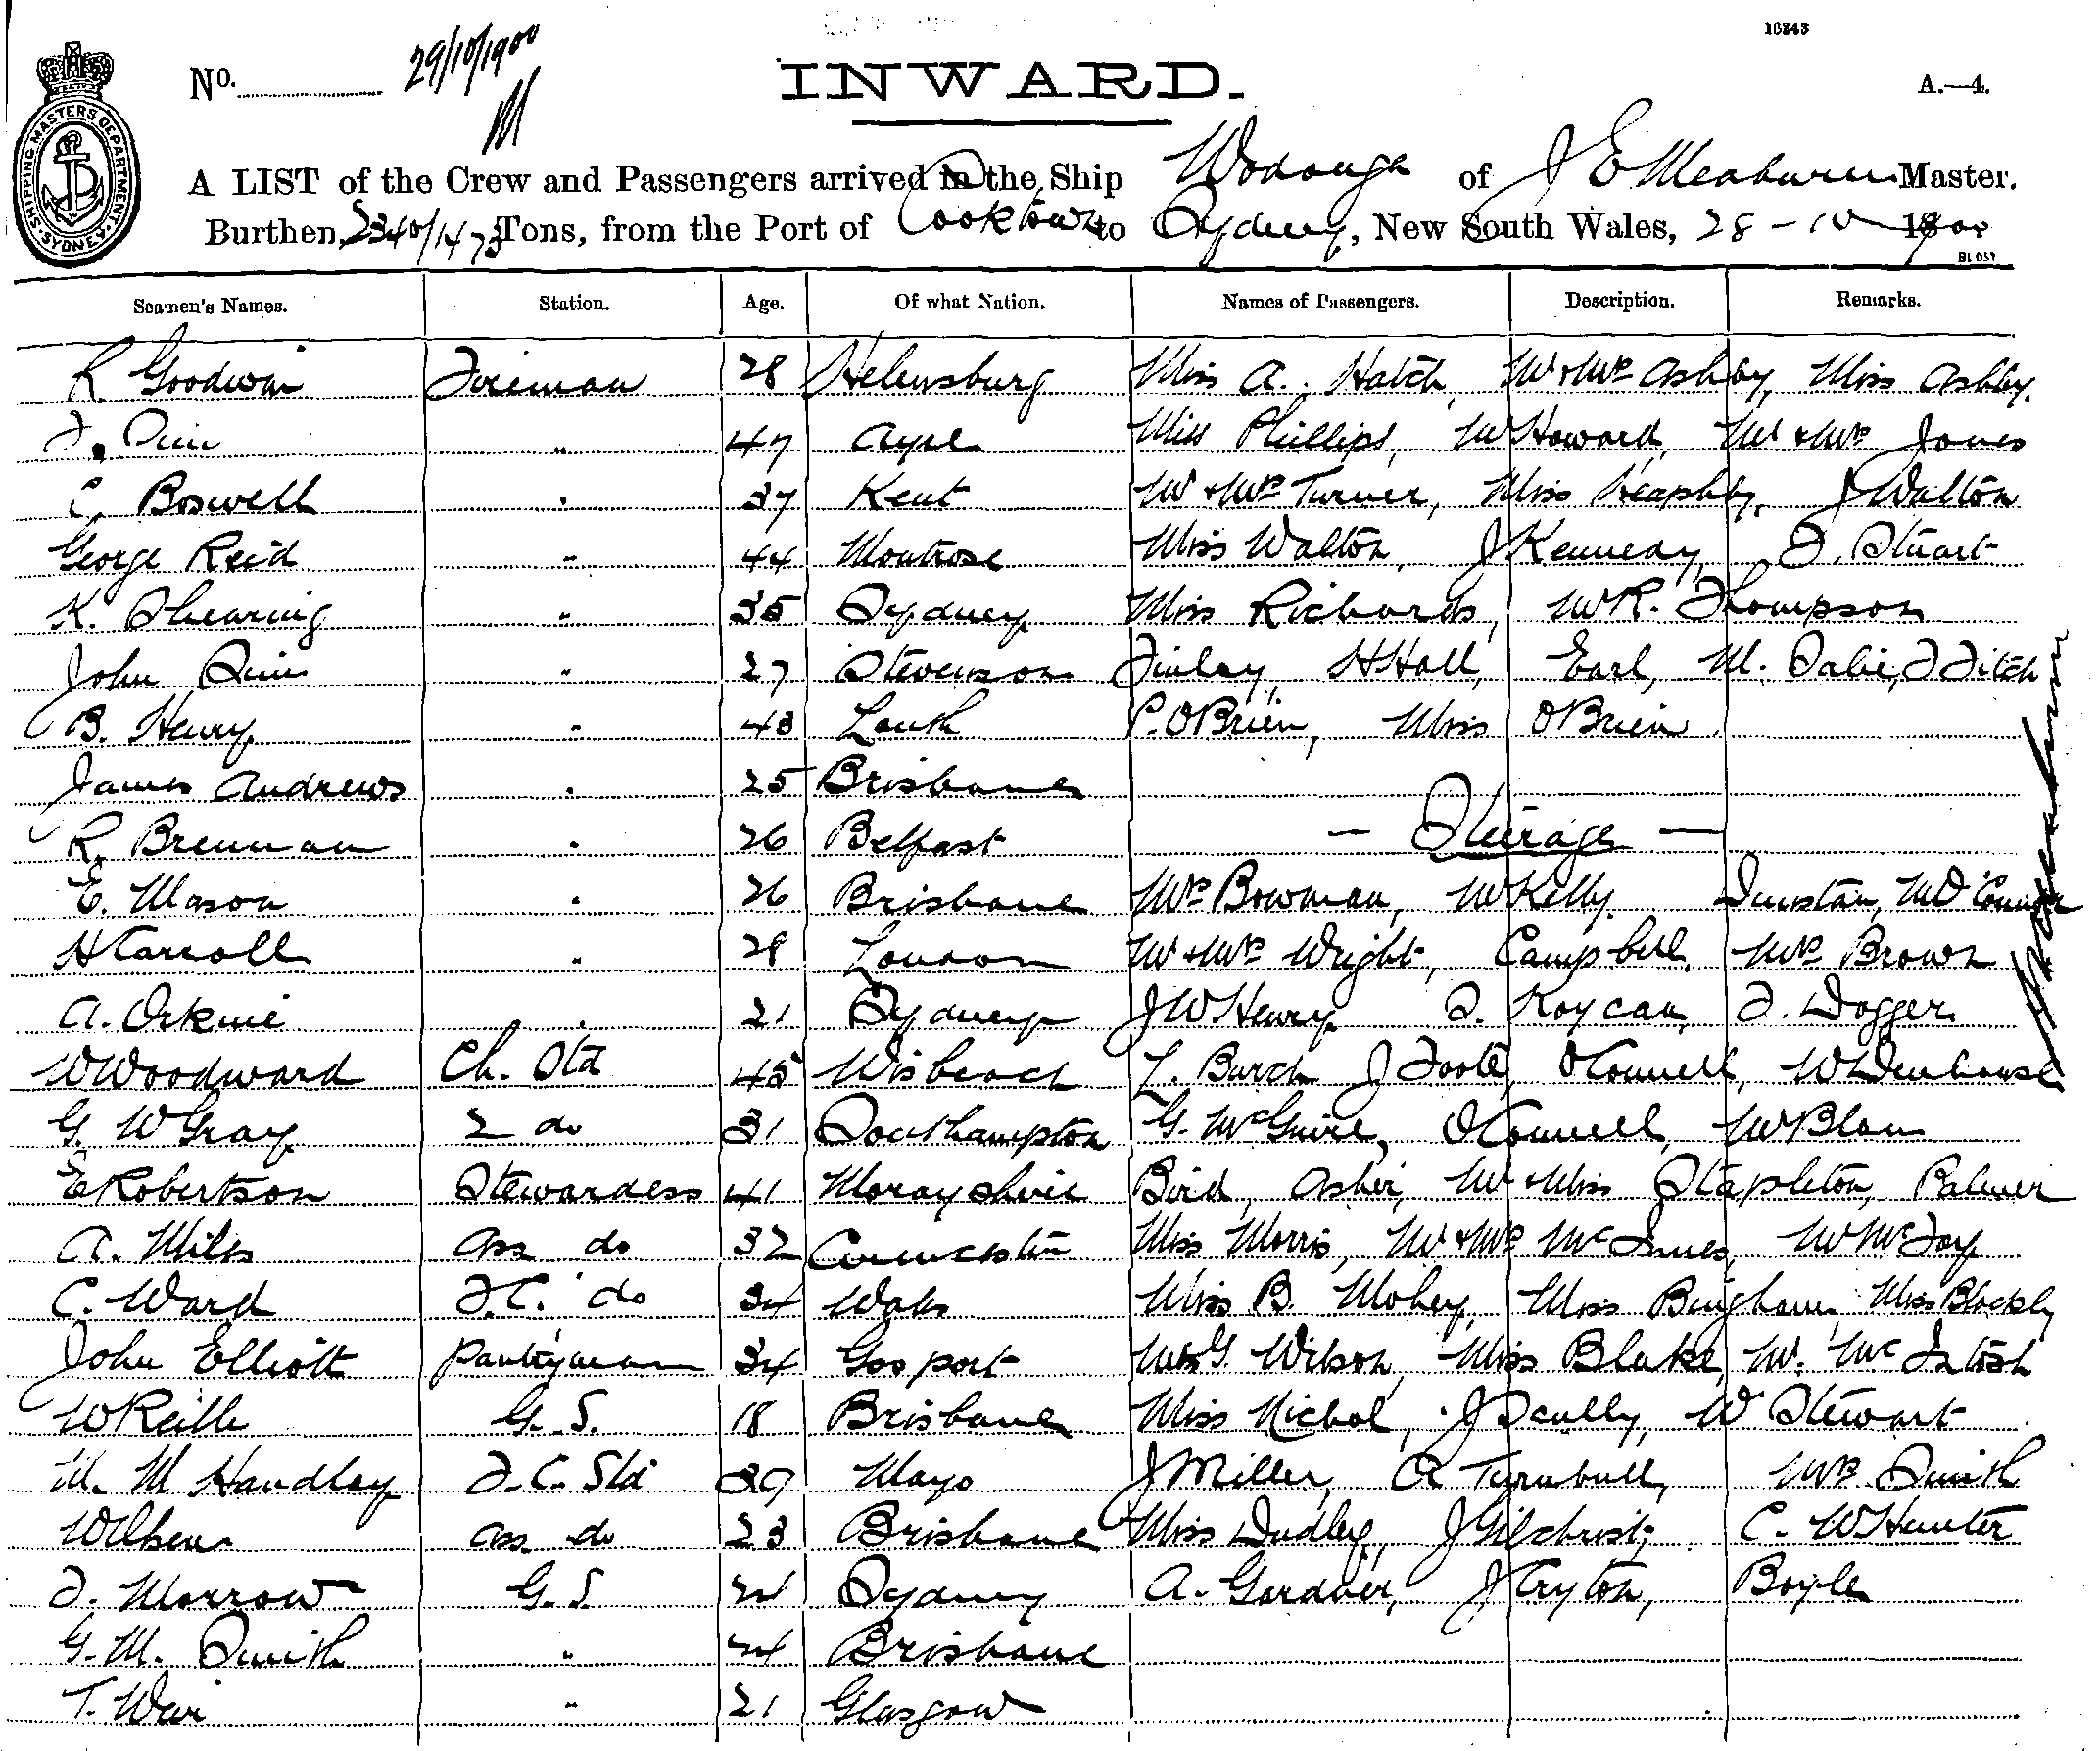 16343
No. 29/10/1900
INWARD.
A.—4.
SHIPPING MASTERS DEPARTMENT · SYDNEY ·
A LIST of the Crew and Passengers arrived in the Ship Wodonga of J E Meaburn Master.
Burthen, 2340/1473 Tons, from the Port of Cooktown to Sydney, New South Wales, 28 - 10 1900
Seamen's Names. Station. Age. Of what Nation. Names of Passengers. Description. Remarks.
R Goodwin Fireman 28 Helensburg Miss A. Hatch, Mr & Mrs Ashby, Miss Ashby.
47 Ayre Miss Phillips, Mr Howard, Mr & Mrs Jones
C. Boswell " 37 Kent Mr & Mrs Turner, Miss Heaphy, J Walton
George Reid " 44 Montrose Miss Walton, J Kennedy, F. Stuart
K. Shearing " 35 Sydney Miss Richards, Mr R. Thompson
John " 27 Stevenson Finley, H Hall, Earl, M. F Fitch
B. Henry " 43 Louth P. O'Brien, Miss O'Brien.
James Andrews " 25 Brisbane
R. Brennan " 26 Belfast — Steerage —
E. Mason " 26 Brisbane Mrs Bowman, Mr Kelly. Dunstan,
H Carroll " 28 London Mr & Mrs Wright, Campbell, Mrs Brown
A. " 21 Sydney J W Henry F. Dogger
W Woodward Ch. Std 45 Wisbeach L. Burch J Foote, O'Connell,
G. W Gray 2 do 31 Southampton G. McGuire, O'Connell,
E Robertson Stewardess 41 Morayshire Bird, Asher, Mr & Miss Stapleton, Palmer
A. Mills Ass do 32 Miss Morris, Mr & Mrs McInnes, Mr McFoy
C. Ward F.C. do 34 Miss B. Miss Bingham, Miss Blockley
John Elliott Pantryman 34 Gosport G. Wilson, Miss Blake, Mr. McIntosh
W G. S. 18 Brisbane Miss Nichol, J Scully, W Stewart
M. M Handley F.C. Std 39 Mayo J Miller, A Turnbull, Mrs Smith
Ass do 23 Brisbane Miss Dudley, J Gilchrist, C. W Hunter
F. Morrow G.S. Sydney A. Gardner, J Cryton, Boyle
G. M. Smith " 24 Brisbane
T. Weir " 21 Glasgow